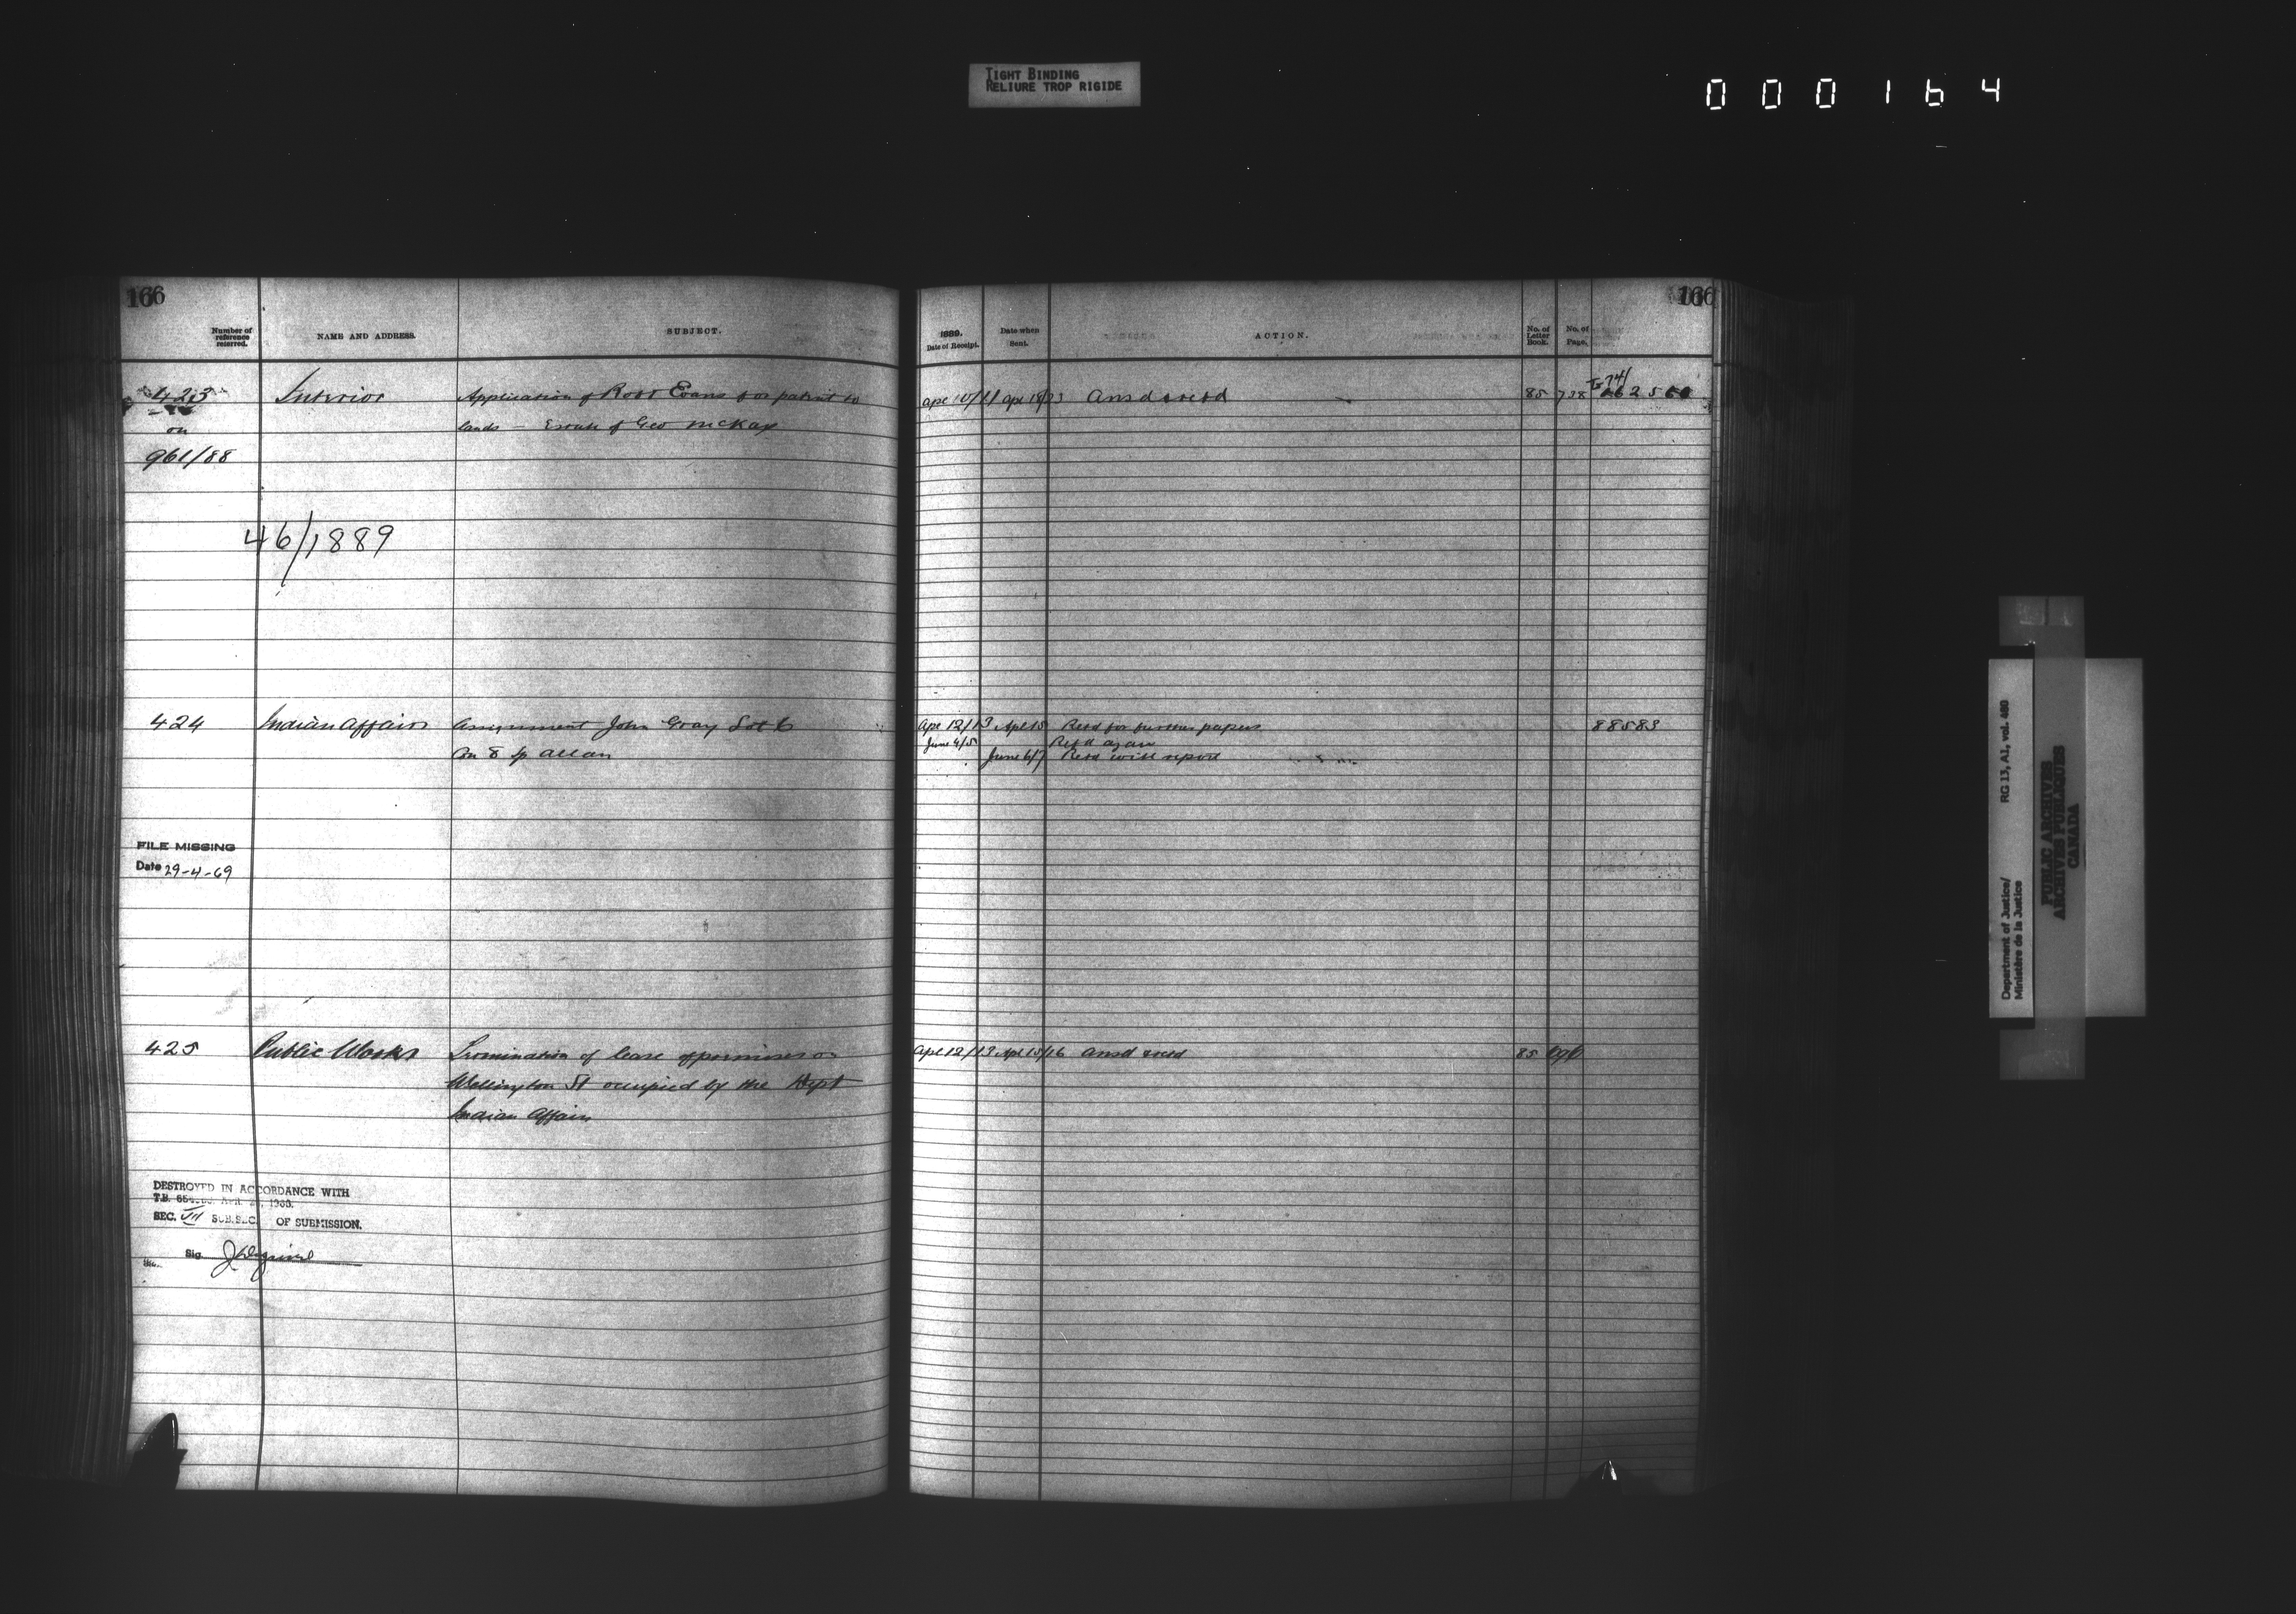 TIGHT BINDING
RELIURE TROP RIGIDE
000164
166
Number of reference referred.
NAME AND ADDRESS.
SUBJECT.
423
on
961/88
Interior
Application of Robt Evans for patent to
lands — Estate of Geo McKay
46/1889
424
Indian Affairs
Assignment John Gray Lot 6
Con 8 Tp Allan
FILE MISSING
Date 29-4-69
425
Public Works
Termination of lease of premises on
Wellington St occupied by the Dept
Indian Affairs
DESTROYED IN ACCORDANCE WITH
T.B.
SEC. VII SUB.SEC. OF SUBMISSION.
Sig.
166
1889.
Date of Receipt.
Date when Sent.
ACTION.
No. of Letter Book.
No. of Page.
Apl 10/11 Apl 18/23 Ansd & retd 85 738
Apl 12/13 Apl 15 Retd for further papers 88583
June 4/5 Retd again
June 6/7 Retd with report
Apl 12/13 Apl 15/16 Ansd & retd 85 696
Department of Justice/ RG 13, A1, vol. 480
Ministère de la Justice
PUBLIC ARCHIVES
ARCHIVES PUBLIQUES
CANADA